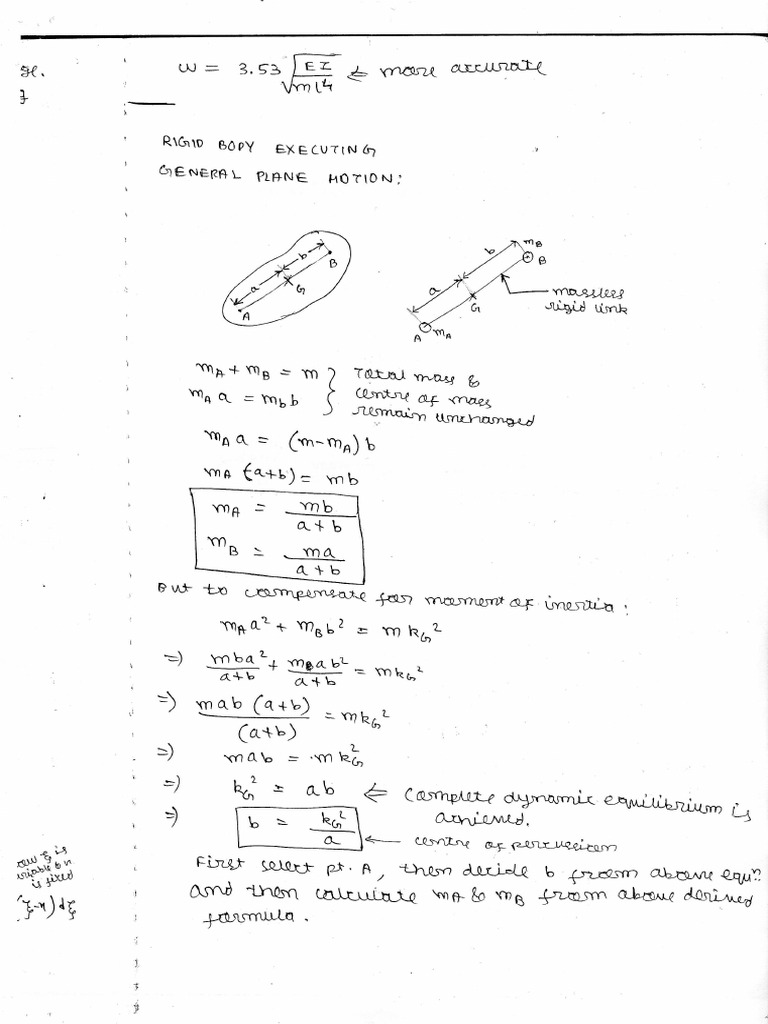 ω = 3.53 √(EI/mL⁴) ⇐ more accurate
RIGID BODY EXECUTING
GENERAL PLANE MOTION:
a b G A B
a b G A m_A m_B B
massless
rigid link
m_A + m_B = m } Total mass &
m_A a = m_b b } centre of mass
remain unchanged
m_A a = (m - m_A) b
m_A (a+b) = mb
m_A = mb/(a+b)
m_B = ma/(a+b)
But to compensate for moment of inertia:
m_A a² + m_B b² = m k_G²
⇒ mba²/(a+b) + mab²/(a+b) = m k_G²
⇒ mab (a+b)/(a+b) = m k_G²
⇒ mab = m k_G²
⇒ k_G² = ab ⇐ Complete dynamic equilibrium is
achieved.
⇒ b = k_G²/a ← centre of percussion
First select pt. A, then decide b from above equⁿ
and then calculate m_A & m_B from above derived
formula.
is fixed